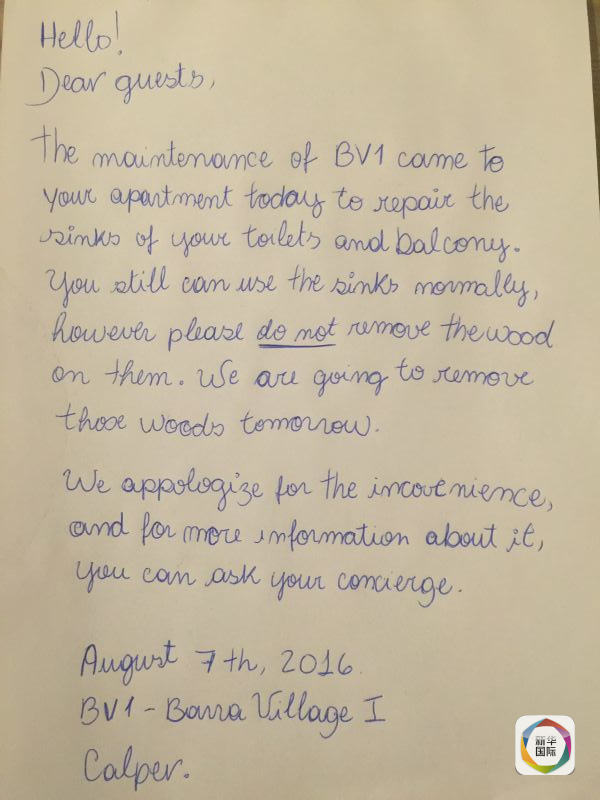 Hello!
Dear guests,
The maintenance of BV1 came to
your apartment today to repair the
sinks of your toilets and balcony.
You still can use the sinks normally,
however please do not remove the wood
on them. We are going to remove
those woods tomorrow.
We appologize for the incovenience,
and for more information about it,
you can ask your concierge.
August 7th, 2016.
BV1 - Barra Village I
Calper.
新华
国际